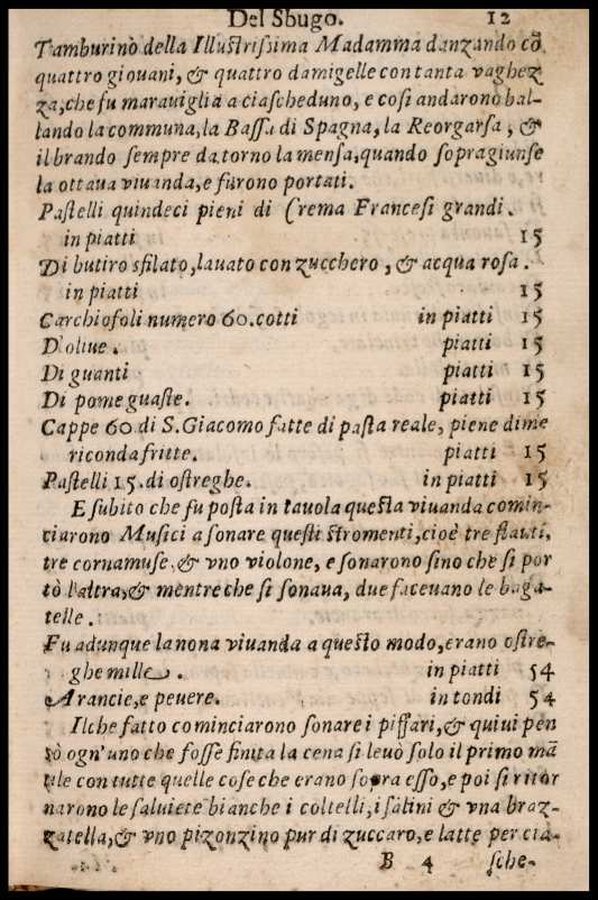 Del Sbugo. 12
Tamburino della Illustrissima Madamma danzando cõ
quattro giouani, & quattro damigelle con tanta vaghez
za, che fu marauiglia a ciascheduno, e cosi andarono bal-
lando la communa, la Bassa di Spagna, la Reorgarsa, &
il brando sempre da torno la mensa, quando sopragiunse
la ottaua viuanda, e furono portati.
Pastelli quindeci pieni di Crema Francesi grandi.
in piatti 15
Di butiro sfilato, lauato con zucchero, & acqua rosa.
in piatti 15
Carchiofoli numero 60. cotti in piatti 15
D'oliue. piatti 15
Di guanti piatti 15
Di pome guaste. piatti 15
Cappe 60 di S. Giacomo fatte di pasta reale, piene di me
riconda fritte. piatti 15
Pastelli 15. di ostreghe. in piatti 15
E subito che fu posta in tauola questa viuanda comin-
ciarono Musici a sonare questi stromenti, cioè tre flauti,
tre cornamuse, & vno violone, e sonarono sino che si por
tò l'altra, & mentre che si sonaua, due faceuano le baga-
telle.
Fu adunque la nona viuanda a questo modo, erano ostre-
ghe mille. in piatti 54
Arancie, e peuere. in tondi 54
Ilche fatto cominciarono sonare i piffari, & quiui pen
sò ogn'uno che fosse finita la cena si leuò solo il primo mã
tile con tutte quelle cose che erano sopra esso, e poi si ritor
narono le saluiete bianche i coltelli, i salini & vna braz-
zatella, & vno pizonzino pur di zuccaro, e latte per cia-
B 4 sche-